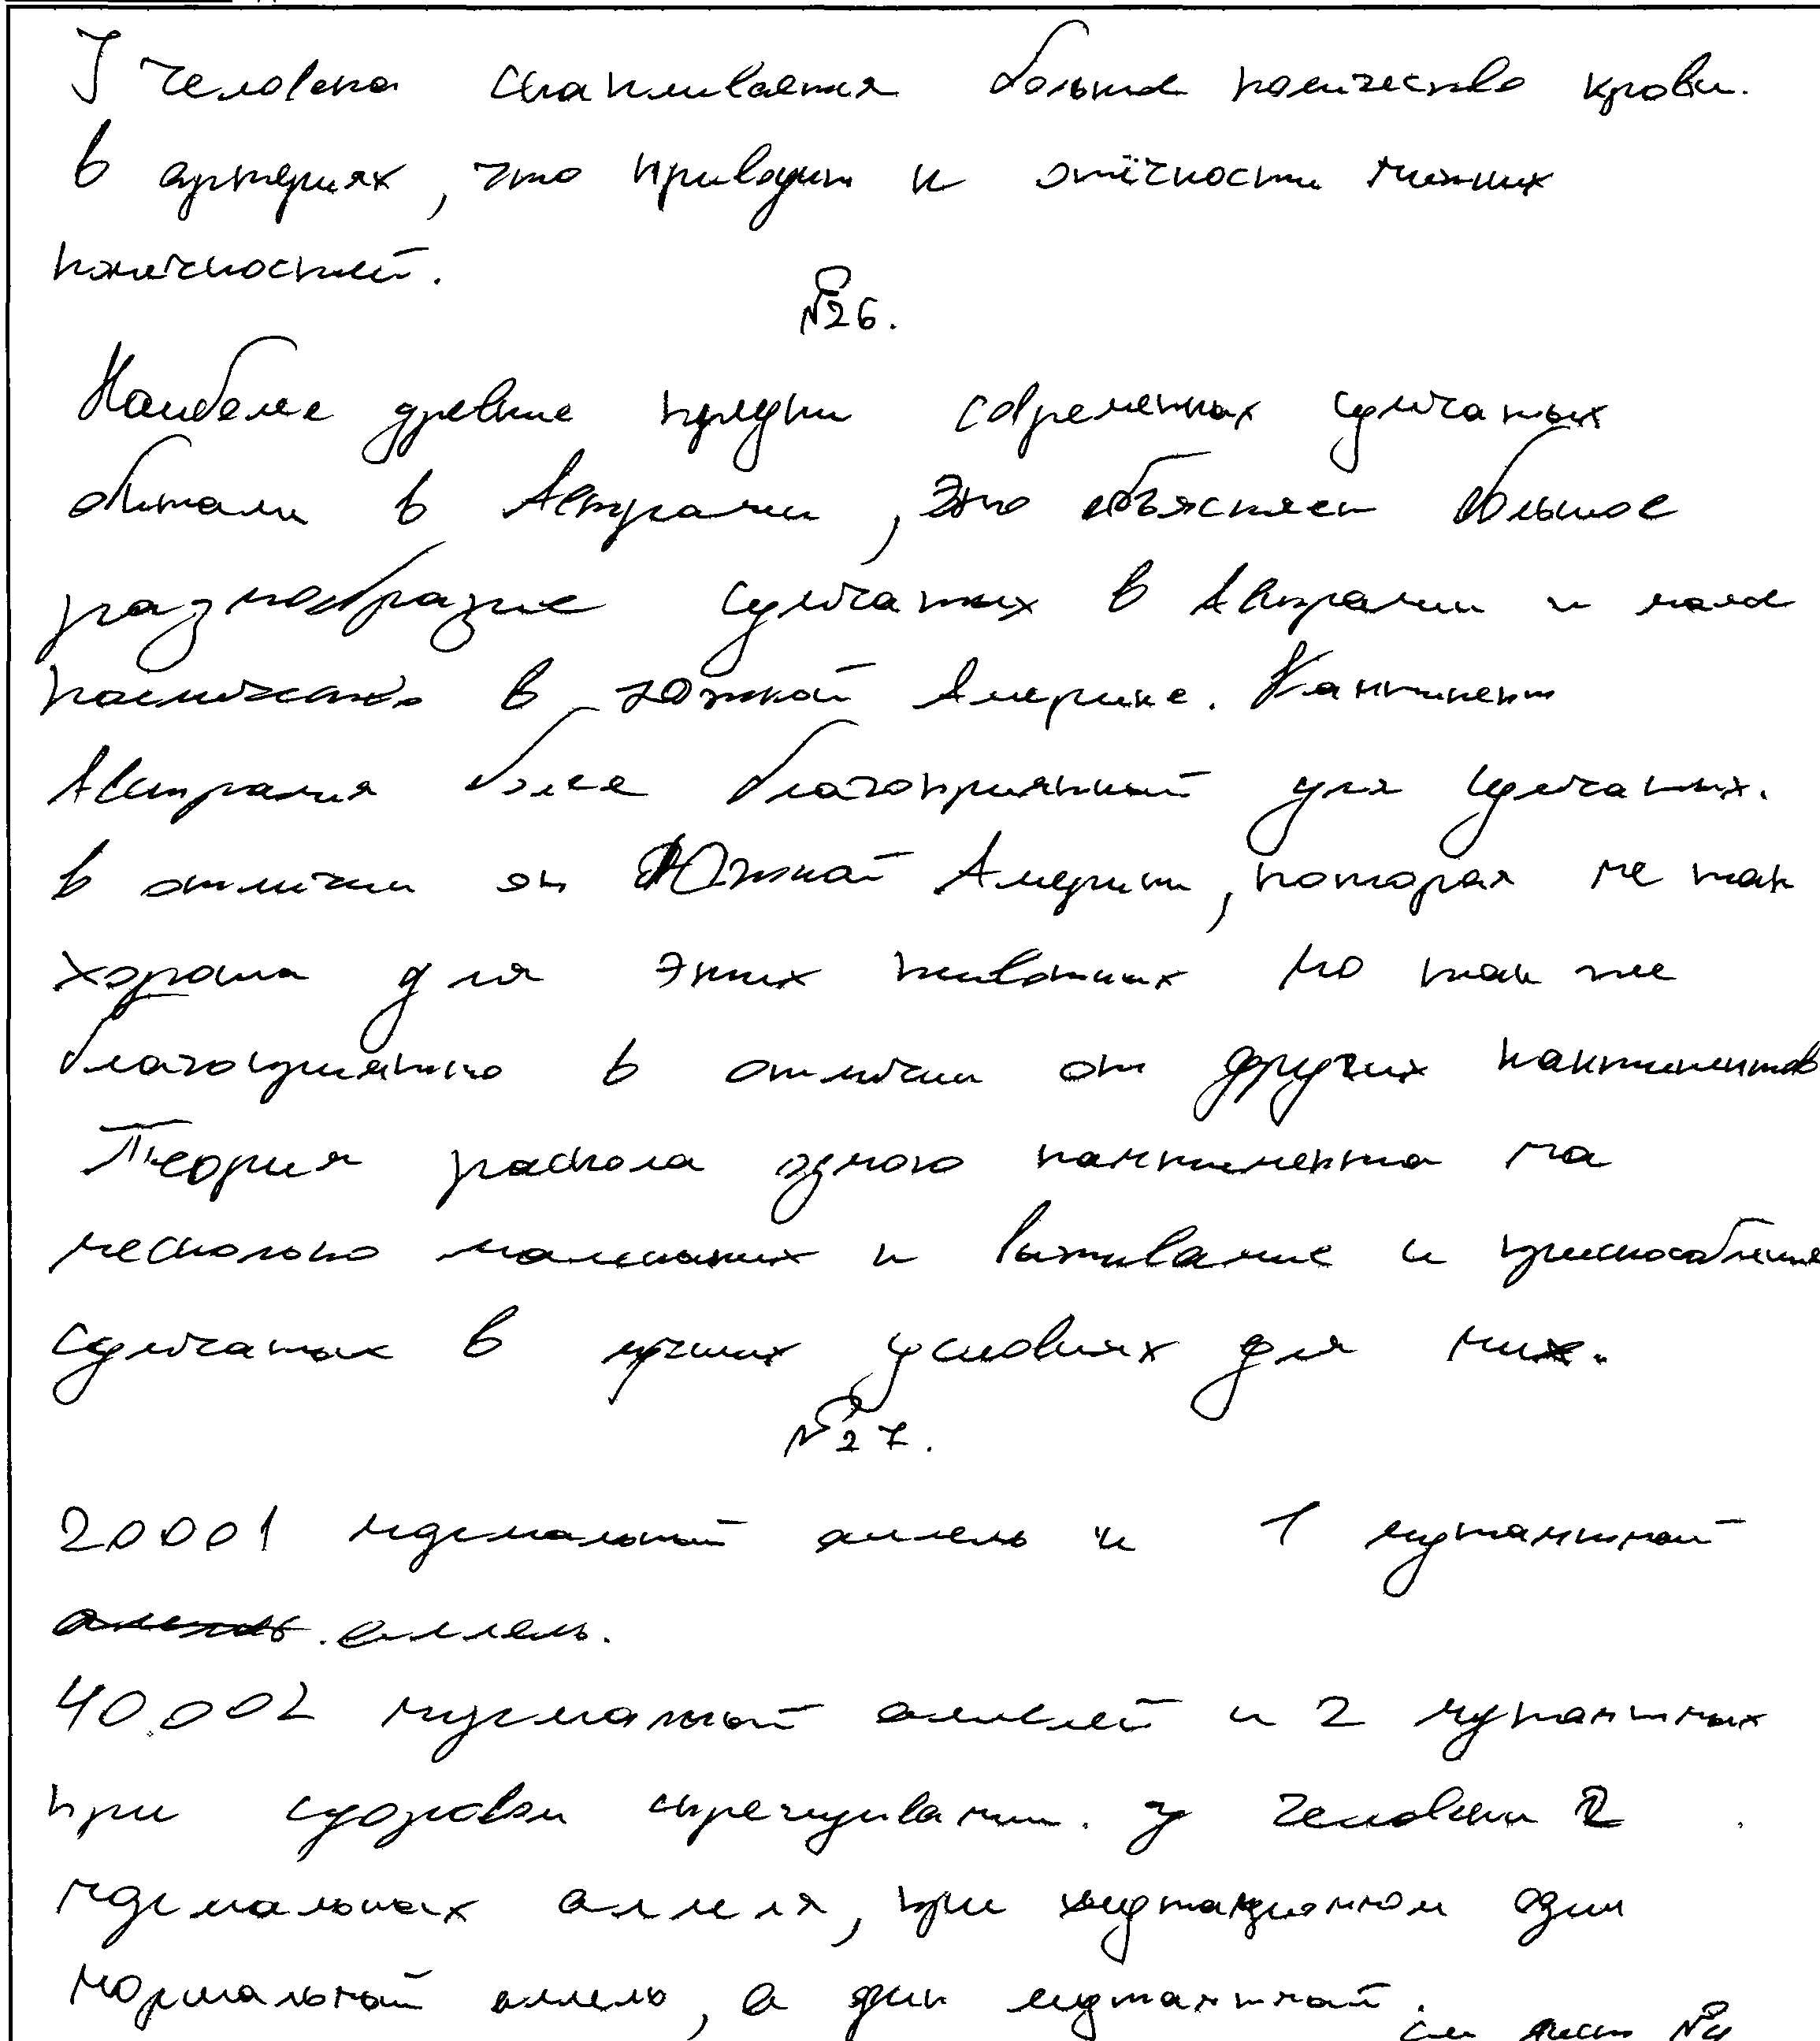 У человека скапливается большое количество крови.
в артериях, что приводит к отёчности нижних
конечностей.
№26.
Наиболее древние предки современных сумчатых
обитали в Австралии, Это объясняет большое
разнообразие сумчатых в Австралии и малое
количество в южной Америке. Континент
Австралия более благоприятный для сумчатых.
в отличии от Южной Америки, которая не так
хороша для этих животных но так же
благоприятна в отличии от других континентов
Теория раскола одного континента на
несколько маленьких и выживание и приспособление
сумчатых в лучших условиях для них.
№27.
20001 нормальный аллель и 1 мутантный
аллель.
40.002 нормальный аллелей и 2 мутантных
при здоровом у человека 2
нормальных аллеля, при мутационном один
нормальный аллель, а один мутантный.
см лист №4